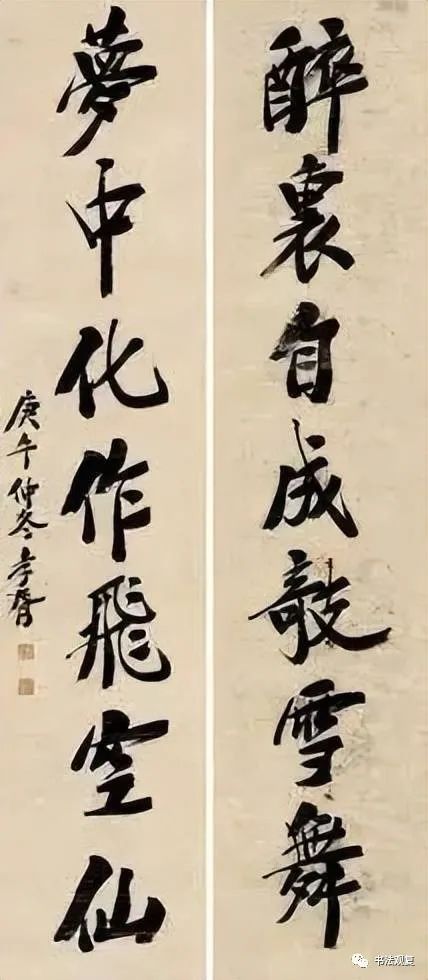 醉裏自成攲雪舞
夢中化作飛空仙
庚午仲冬孝胥
书法观复